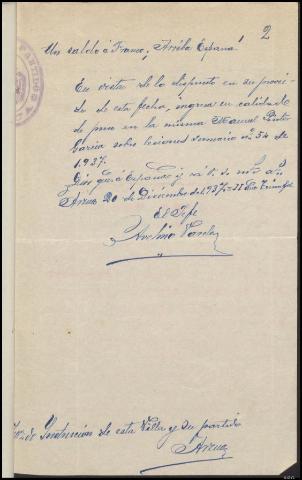 2
Un saludo á Franco; ¡Arriba España!
En virtud de lo dispuesto en su provei-
do de esta fecha, ingresa en calidad
de preso en la misma Manuel Pinto
García sobre lesiones sumario nº 54 de
1.937.
Dios guíe á España y á V. S. m. a.
Arzua 20 de Diciembre de 1.937= II Año Triunfal
El Jefe
Avelino Varela
Juez de Instrucción de esta Villa y su partido
Arzua
PARTIDO